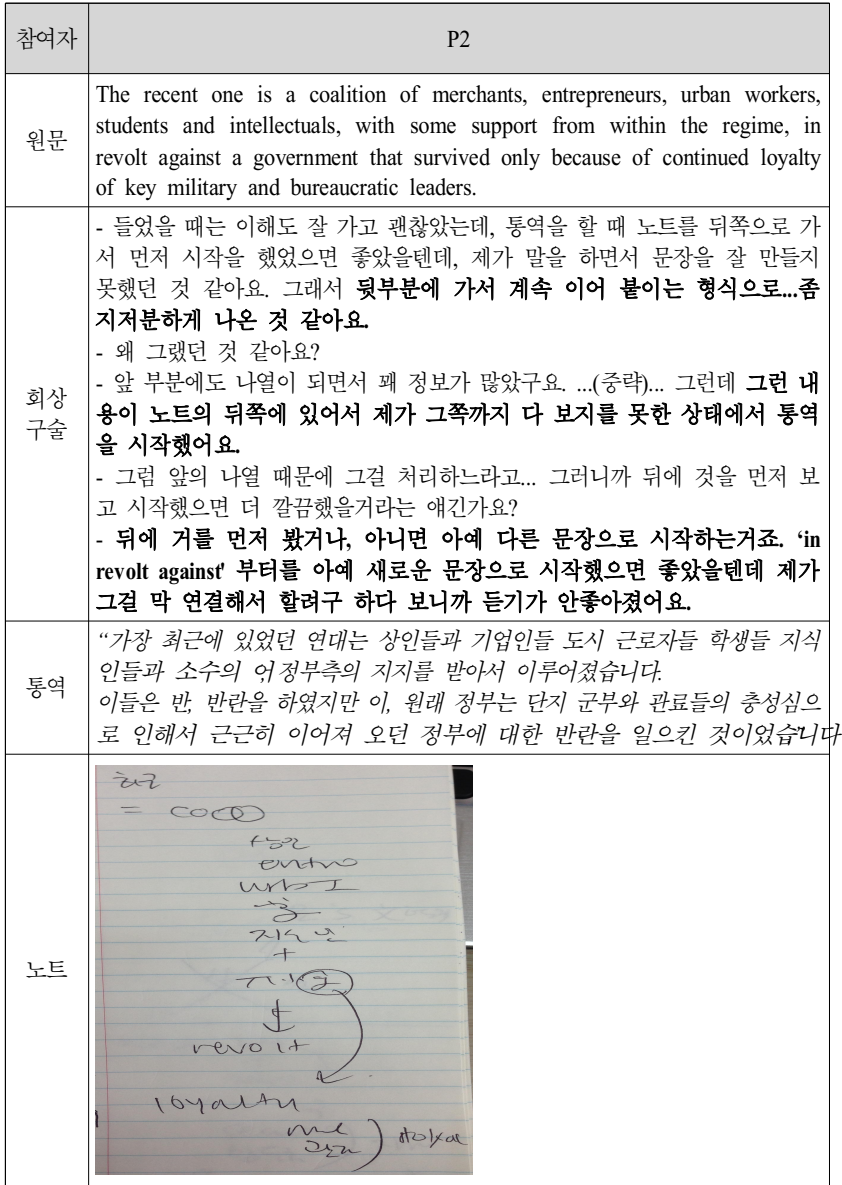 참여자 P2
원문
The recent one is a coalition of merchants, entrepreneurs, urban workers,
students and intellectuals, with some support from within the regime, in
revolt against a government that survived only because of continued loyalty
of key military and bureaucratic leaders.
회상
구술
- 들었을 때는 이해도 잘 가고 괜찮았는데, 통역을 할 때 노트를 뒤쪽으로 가
서 먼저 시작을 했었으면 좋았을텐데, 제가 말을 하면서 문장을 잘 만들지
못했던 것 같아요. 그래서 뒷부분에 가서 계속 이어 붙이는 형식으로...좀
지저분하게 나온 것 같아요.
- 왜 그랬던 것 같아요?
- 앞 부분에도 나열이 되면서 꽤 정보가 많았구요. ...(중략)... 그런데 그런 내
용이 노트의 뒤쪽에 있어서 제가 그쪽까지 다 보지를 못한 상태에서 통역
을 시작했어요.
- 그럼 앞의 나열 때문에 그걸 처리하느라고... 그러니까 뒤에 것을 먼저 보
고 시작했으면 더 깔끔했을거라는 얘긴가요?
- 뒤에 거를 먼저 봤거나, 아니면 아예 다른 문장으로 시작하는거죠. ‘in
revolt against' 부터를 아예 새로운 문장으로 시작했으면 좋았을텐데 제가
그걸 막 연결해서 할려구 하다 보니까 듣기가 안좋아졌어요.
통역
“가장 최근에 있었던 연대는 상인들과 기업인들 도시 근로자들 학생들 지식
인들과 소수의 어, 정부측의 지지를 받아서 이루어졌습니다.
이들은 반, 반란을 하였지만 이, 원래 정부는 단지 군부와 관료들의 충성심으
로 인해서 근근히 이어져 오던 정부에 대한 반란을 일으킨 것이었습니다
노트
최근
=
상인
urb
학
지식인
+
revolt
loyalty